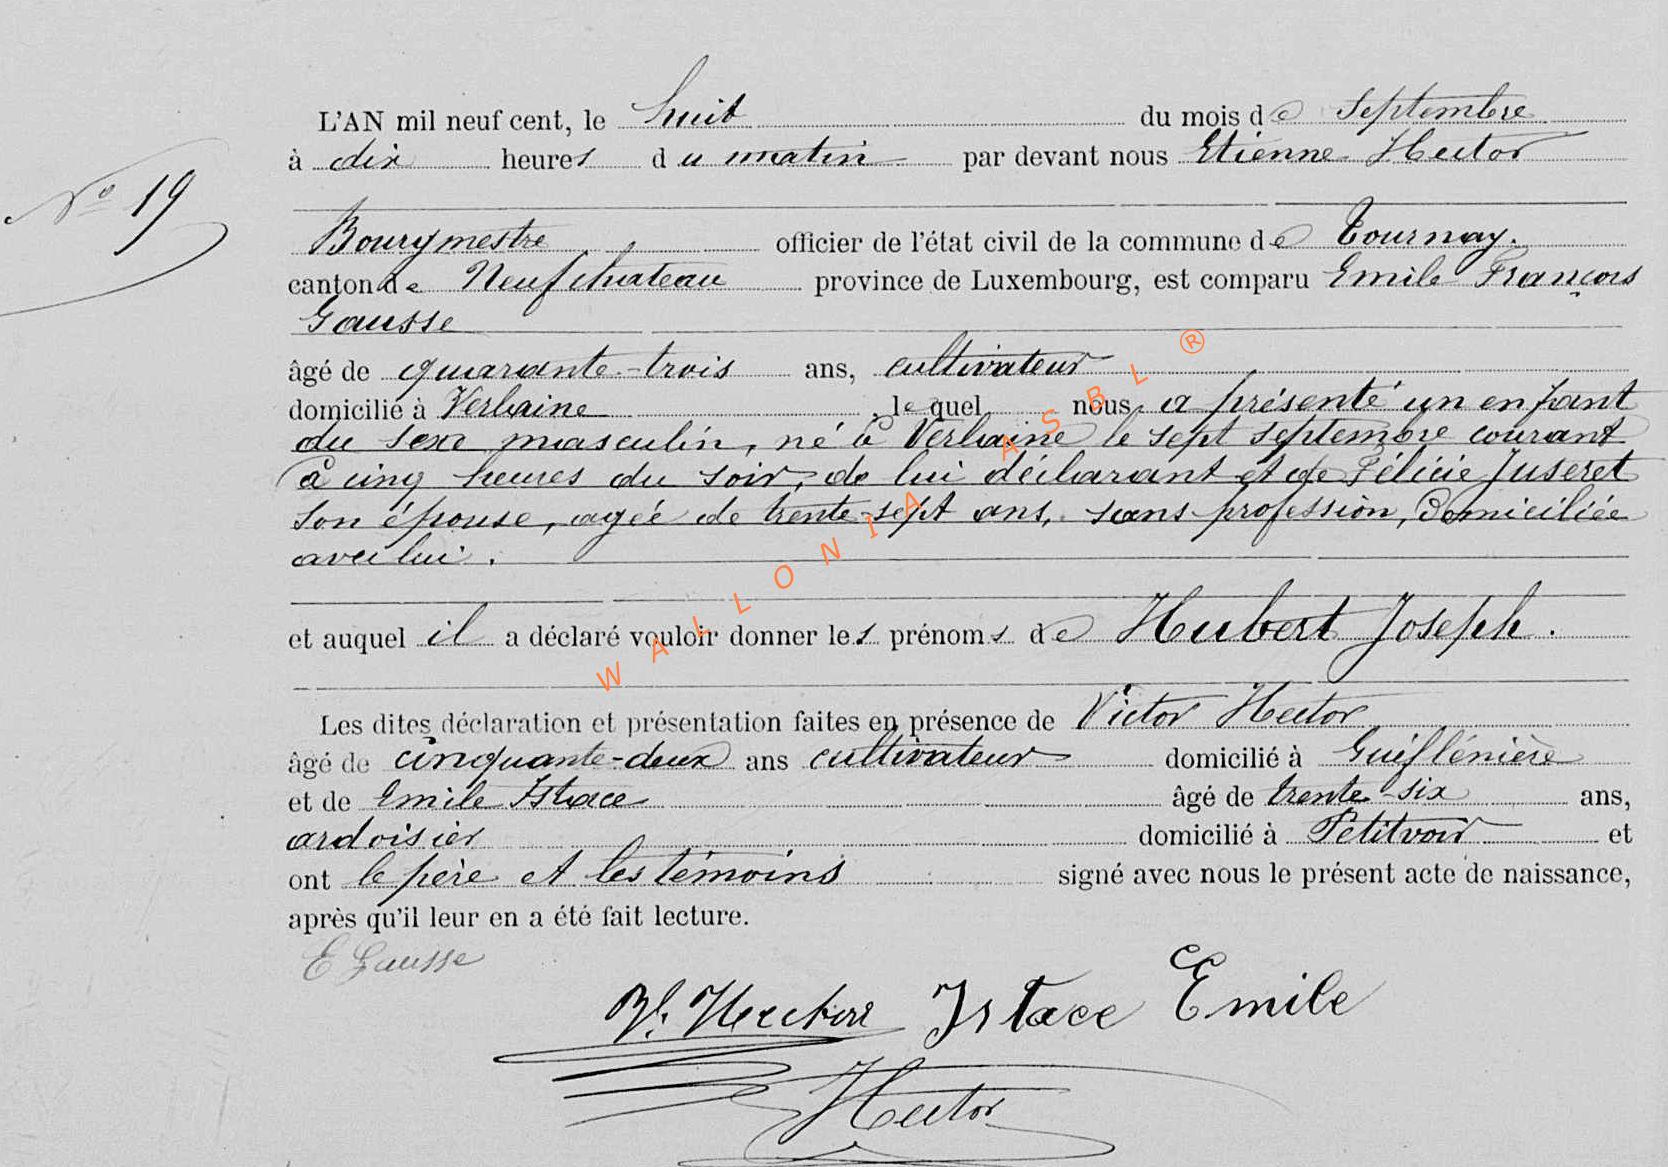 L'AN mil neuf cent, le huit du mois de Septembre
Nº 19
à dix heures du matin par devant nous Etienne Hector
Bourgmestre officier de l'état civil de la commune de Tournay.
canton de Neufchateau province de Luxembourg, est comparu Emile François
Gausse
âgé de quarante-trois ans, cultivateur
domicilié à Verlaine lequel nous a présenté un enfant
du sexe masculin, né à Verlaine le sept septembre courant
à cinq heures du soir, de lui déclarant et de Félicie Juseret
son épouse, agée de trente-sept ans, sans profession, Domiciliée
avec lui.
et auquel il a déclaré vouloir donner les prénoms de Hubert Joseph.
Les dites déclaration et présentation faites en présence de Victor Hector
âgé de cinquante-deux ans cultivateur domicilié à
et de Emile Istace âgé de trente-six ans,
ardoisier domicilié à Petitvoir et
ont le père et les témoins signé avec nous le présent acte de naissance,
après qu'il leur en a été fait lecture.
E Gausse
Istace Emile
Hector
WALLONIA ASBL ®